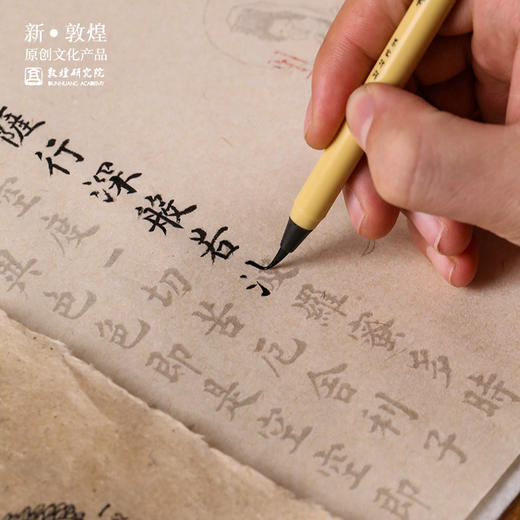 新·敦煌
原创文化产品
敦煌研究院
DUNHUANG ACADEMY
薩行深般若波羅蜜多時
空度一切苦厄舍利子
異色色即是空空即